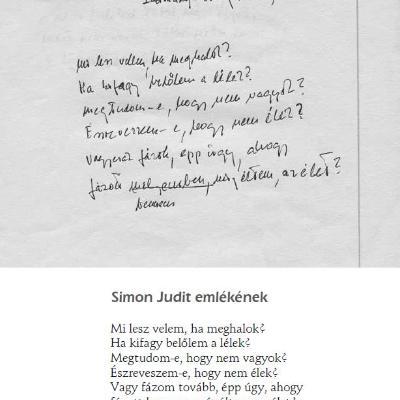 mi lesz velem, ha meghalok?
Ha kifagy belőlem a lélek?
megtudom-e, hogy nem vagyok?
Észreveszem-e, hogy nem élek?
vagy fázok, épp úgy, ahogy
fázok, míg éltem, az élet?
Simon Judit emlékének
Mi lesz velem, ha meghalok?
Ha kifagy belőlem a lélek?
Megtudom-e, hogy nem vagyok?
Észreveszem-e, hogy nem élek?
Vagy fázom tovább, épp úgy, ahogy